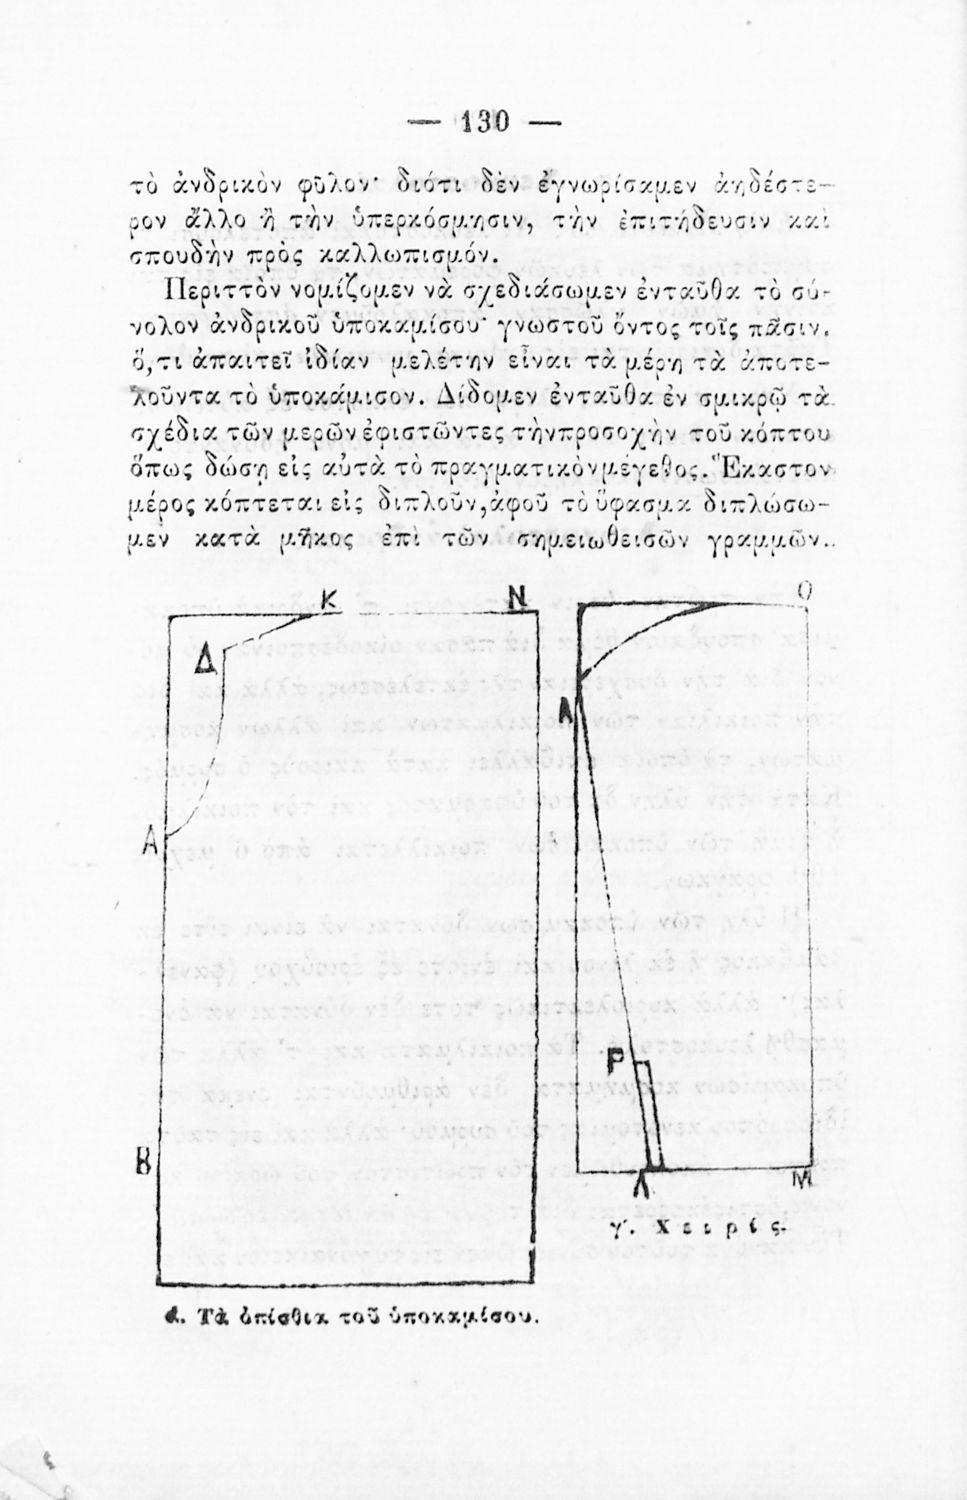 — 130 —
τὸ ἀνδρικὸν φῦλον· διότι δὲν ἐγνωρίσαμεν ἀηδέστε-
ρον ἄλλο ἢ τὴν ὑπερκόσμησιν, τὴν ἐπιτήδευσιν καὶ
σπουδὴν πρὸς καλλωπισμόν.
Περιττὸν νομίζομεν νὰ σχεδιάσωμεν ἐνταῦθα τὸ σύ-
νολον ἀνδρικοῦ ὑποκαμίσου· γνωστοῦ ὄντος τοῖς πᾶσιν.
ὅ,τι ἀπαιτεῖ ἰδίαν μελέτην εἶναι τὰ μέρη τὰ ἀποτε-
λοῦντα τὸ ὑποκάμισον. Δίδομεν ἐνταῦθα ἐν σμικρῷ τὰ
σχέδια τῶν μερῶν ἐφιστῶντες τὴν προσοχὴν τοῦ κόπτου
ὅπως δώσῃ εἰς αὐτὰ τὸ πραγματικὸν μέγεθος. Ἕκαστον
μέρος κόπτεται εἰς διπλοῦν, ἀφοῦ τὸ ὕφασμα διπλώσω-
μεν κατὰ μῆκος ἐπὶ τῶν σημειωθεισῶν γραμμῶν.
Κ Ν Ο
Δ
Α
Α
Ρ
Β
Λ Μ
γ'. Χειρίς.
α. Τὰ ὀπίσθια τοῦ ὑποκαμίσου.